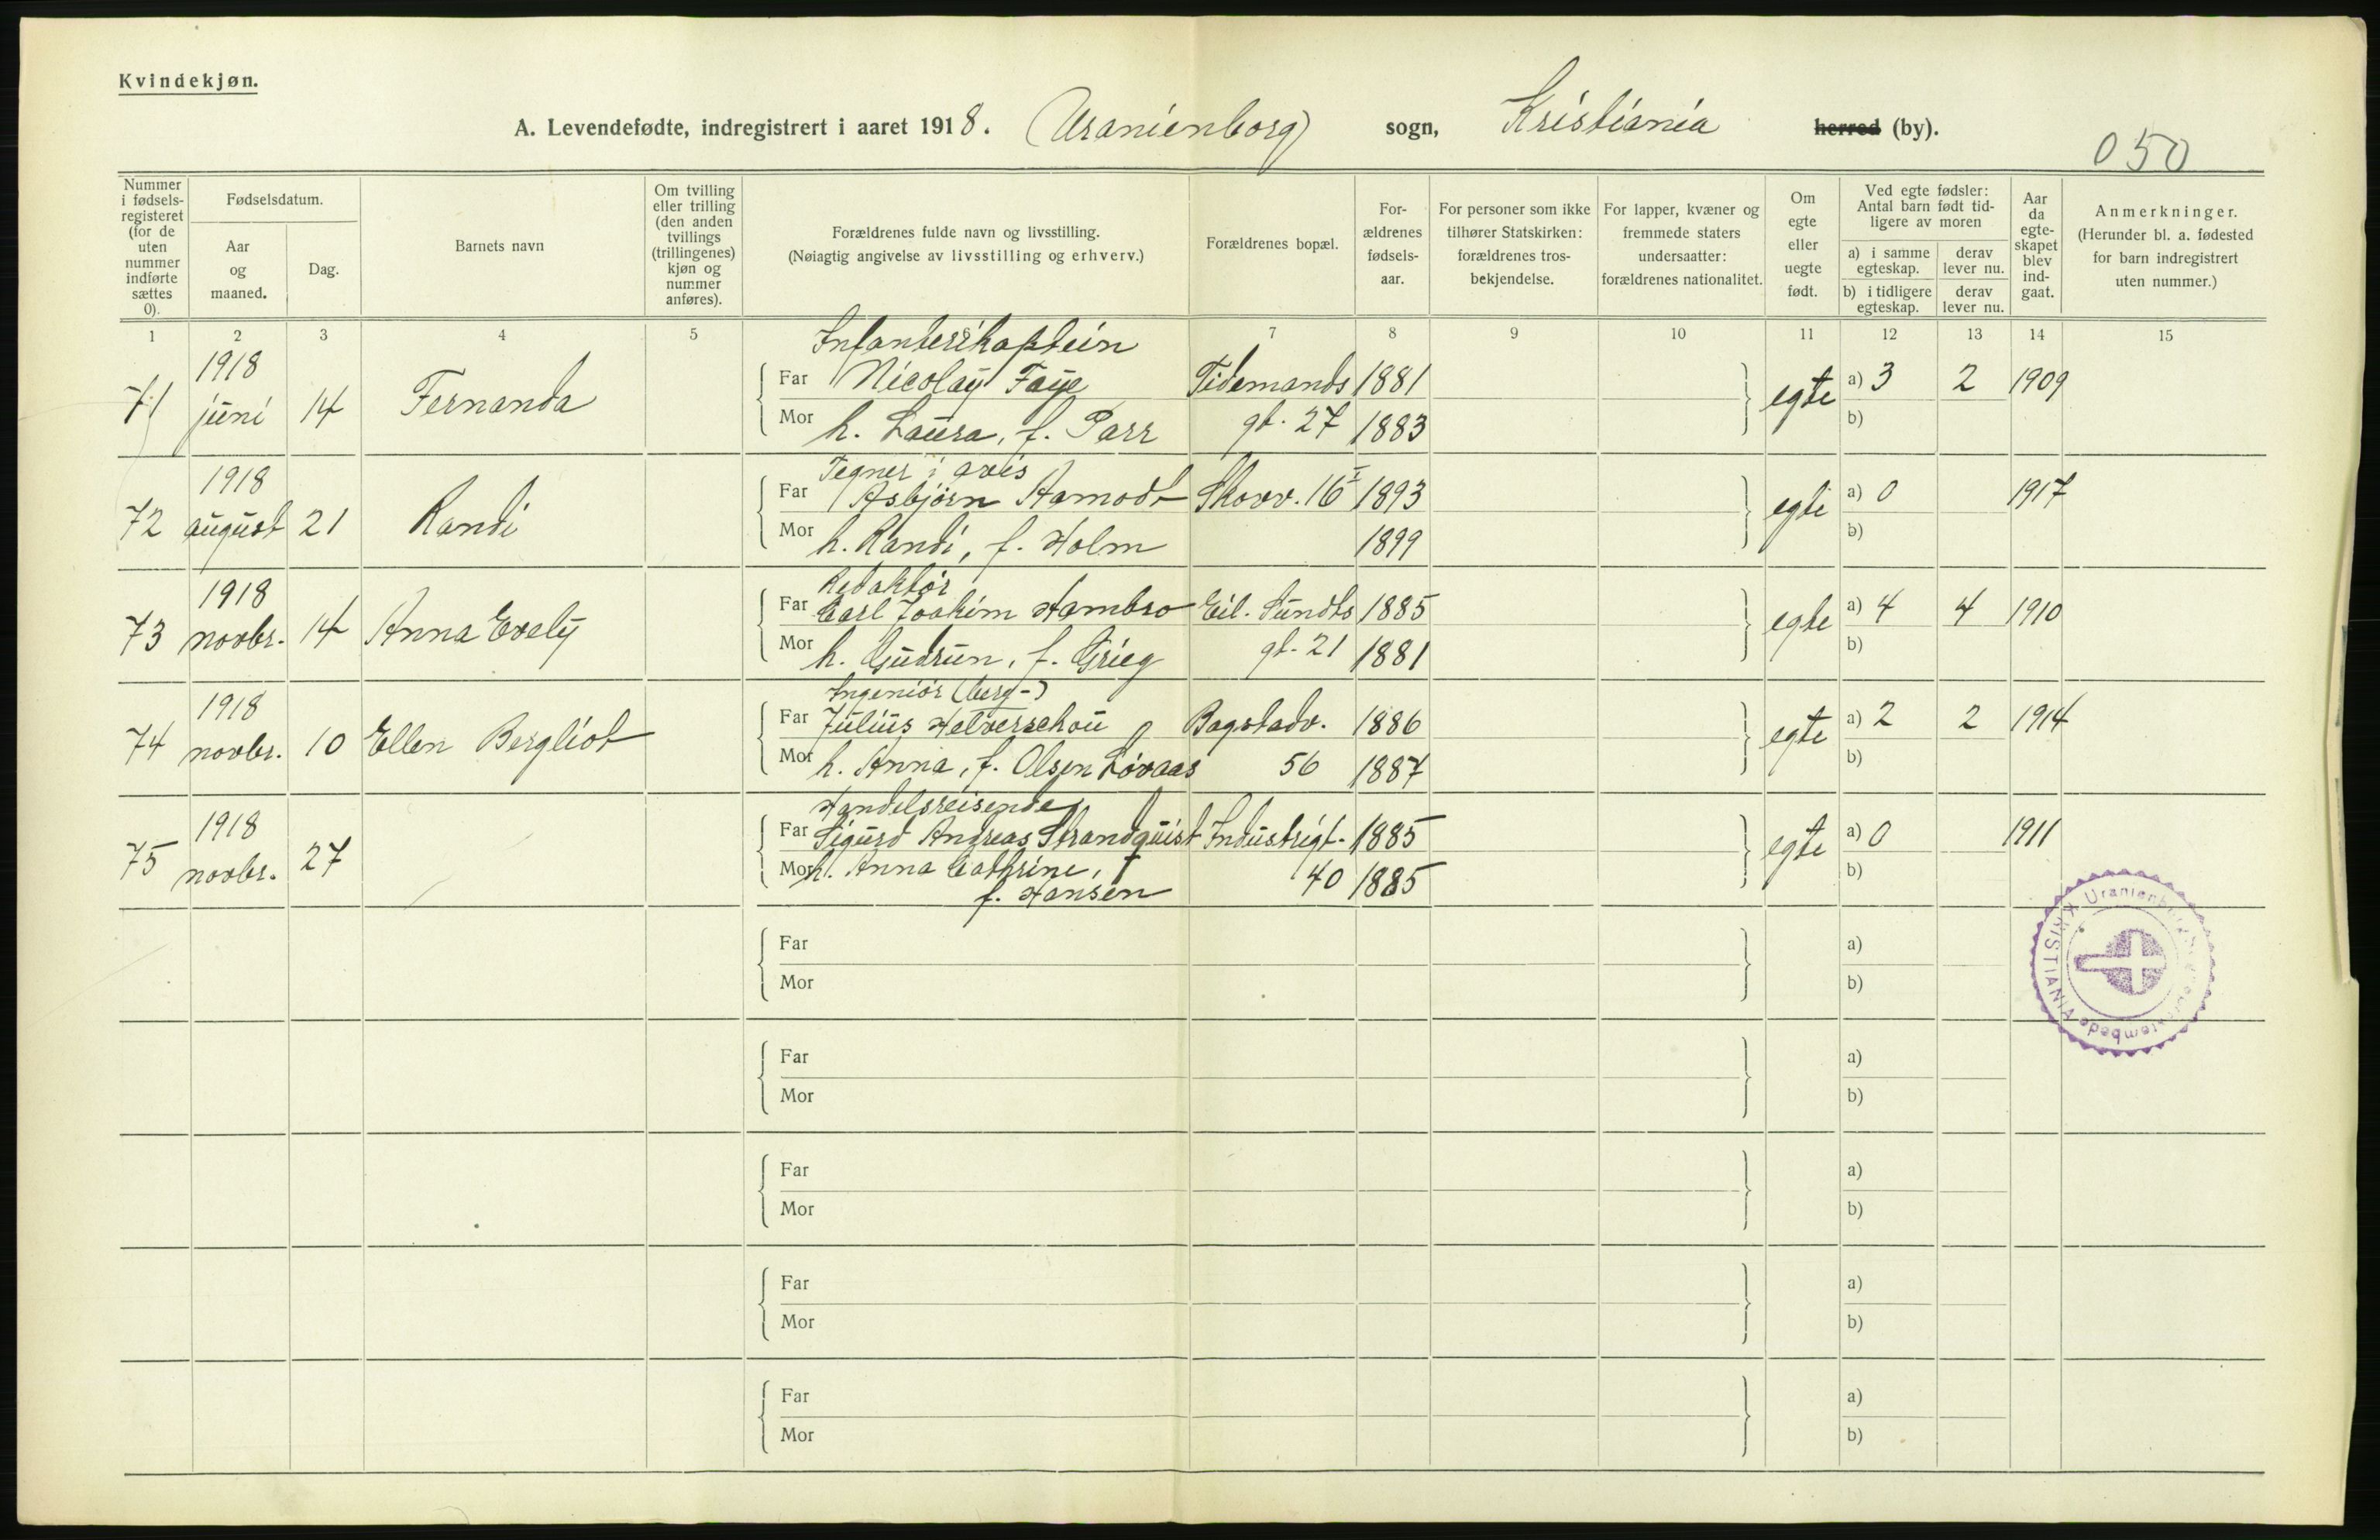 Kvindekjøn.
A. Levendefødte, indregistrert i aaret 1918. Uranienborg sogn, Kristiania herred (by).
050
Nummer i fødsels-registeret (for de uten nummer indførte sættes 0).
Fødselsdatum.
Aar og maaned.
Dag.
Barnets navn
Om tvilling eller trilling (den anden tvillings (trillingenes) kjøn og nummer anføres).
Forældrenes fulde navn og livsstilling.
(Nøiagtig angivelse av livsstilling og erhverv.)
Forældrenes bopæl.
For-ældrenes fødsels-aar.
For personer som ikke tilhører Statskirken: forældrenes tros-bekjendelse.
For lapper, kvæner og fremmede staters undersaatter: forældrenes nationalitet.
Om egte eller uegte født.
Ved egte fødsler: Antal barn født tid-ligere av moren
a) i samme egteskap.
derav lever nu.
b) i tidligere egteskap.
derav lever nu.
Aar da egte-skapet blev ind-gaat.
Anmerkninger.
(Herunder bl. a. fødested for barn indregistrert uten nummer.)
1 2 3 4 5 6 7 8 9 10 11 12 13 14 15
Infanterikaptein
71 1918 juni 14 Fernanda Far Nicolay Faye Tidemands 1881 egte a) 3 2 1909
Mor h. Laura, f. Parr gt. 27 1883 b)
Tegner i avis
72 1918 august 21 Randi Far Asbjørn Aamodt Skovv. 16 I 1893 egte a) 0 1917
Mor h. Randi, f. Holm 1899 b)
Redaktør
73 1918 novbr. 14 Anna Evely Far Carl Joakim Hambro Eil. Sundts 1885 egte a) 4 4 1910
Mor h. Gudrun, f. Grieg gt. 21 1881 b)
Ingeniør (berg-)
74 1918 novbr. 10 Ellen Bergliot Far Julius Helverschou Bogstadv. 1886 egte a) 2 2 1914
Mor h. Anna, f. Olsen Løvaas 56 1887 b)
Handelsreisende
75 1918 novbr. 27 Far Sigurd Andreas Strandquist Industrigt. 1885 egte a) 0 1911
Mor h. Anna Cathrine, 40 1885 b)
f. Hansen
Far a)
Mor b)
Far a)
Mor b)
Far a)
Mor b)
Far a)
Mor b)
Far a)
Mor b)
KRISTIANIA